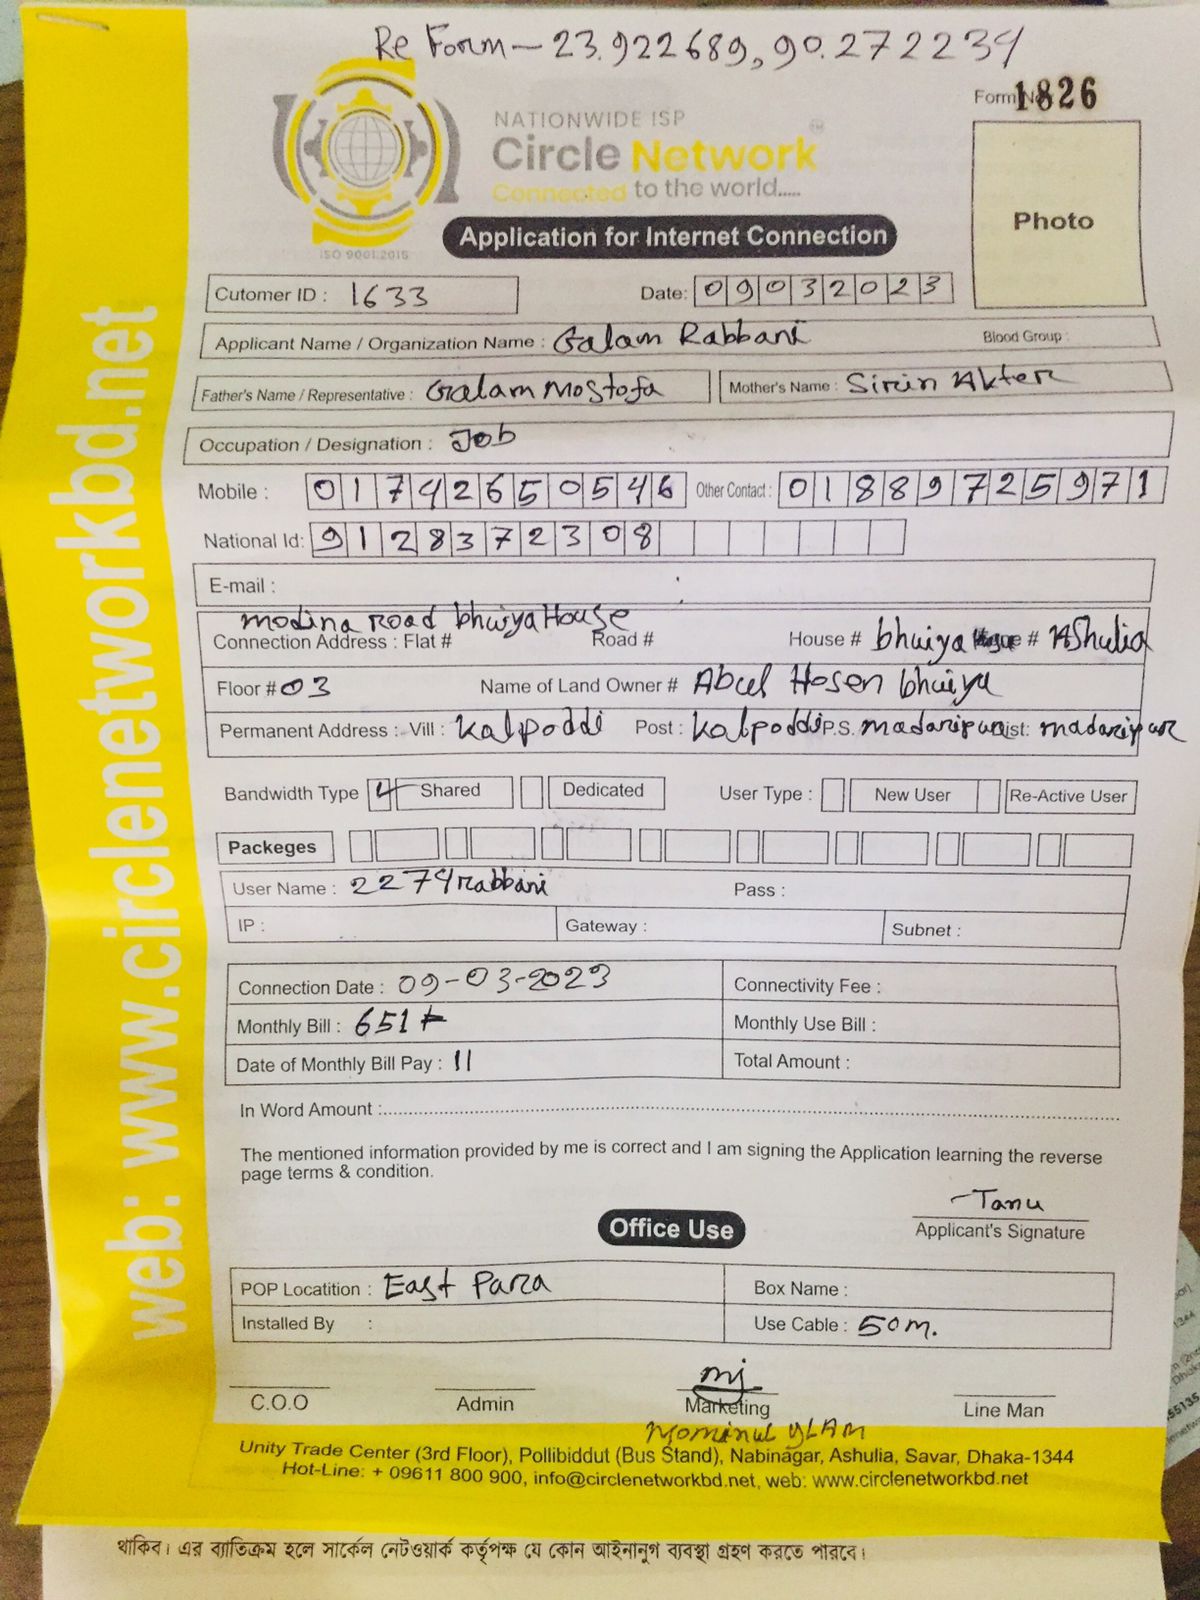 Re Form - 23.922689, 90.272234
Form No 1826
NATIONWIDE ISP
Circle Network
Connected to the world.....
ISO 9001:2015
Application for Internet Connection
Photo
Cutomer ID : 1633 Date: 09032023
Applicant Name / Organization Name : Golam Rabbani Blood Group :
Father's Name / Representative : Golam Mostofa Mother's Name : Sirin Akter
Occupation / Designation : Job
Mobile : 01742650546 Other Contact : 01889725971
National Id: 9128372308
E-mail :
modina Road bhuiya House
Connection Address : Flat # Road # House # bhuiya # AShulia
Floor # 03 Name of Land Owner # Abul Hosen bhuiya
Permanent Address : Vill : Kalpoddi Post : Kalpoddi P.S. madaripur ist: madaripur
Bandwidth Type Shared Dedicated User Type : New User Re-Active User
Packeges
User Name : 2274rabbani Pass :
IP : Gateway : Subnet :
Connection Date : 09-03-2023 Connectivity Fee :
Monthly Bill : 651 Monthly Use Bill :
Date of Monthly Bill Pay : 11 Total Amount :
In Word Amount :
The mentioned information provided by me is correct and I am signing the Application learning the reverse
page terms & condition.
Tanu
Office Use Applicant's Signature
POP Locatition : East Para Box Name :
Installed By : Use Cable : 50m.
mj
C.O.O Admin Marketing Line Man
Mominul YLAM
Unity Trade Center (3rd Floor), Pollibiddut (Bus Stand), Nabinagar, Ashulia, Savar, Dhaka-1344
Hot-Line: + 09611 800 900, info@circlenetworkbd.net, web: www.circlenetworkbd.net
web: www.circlenetworkbd.net
থাকিব। এর ব্যাতিক্রম হলে সার্কেল নেটওয়ার্ক কর্তৃপক্ষ যে কোন আইনানুগ ব্যবস্থা গ্রহণ করতে পারবে।